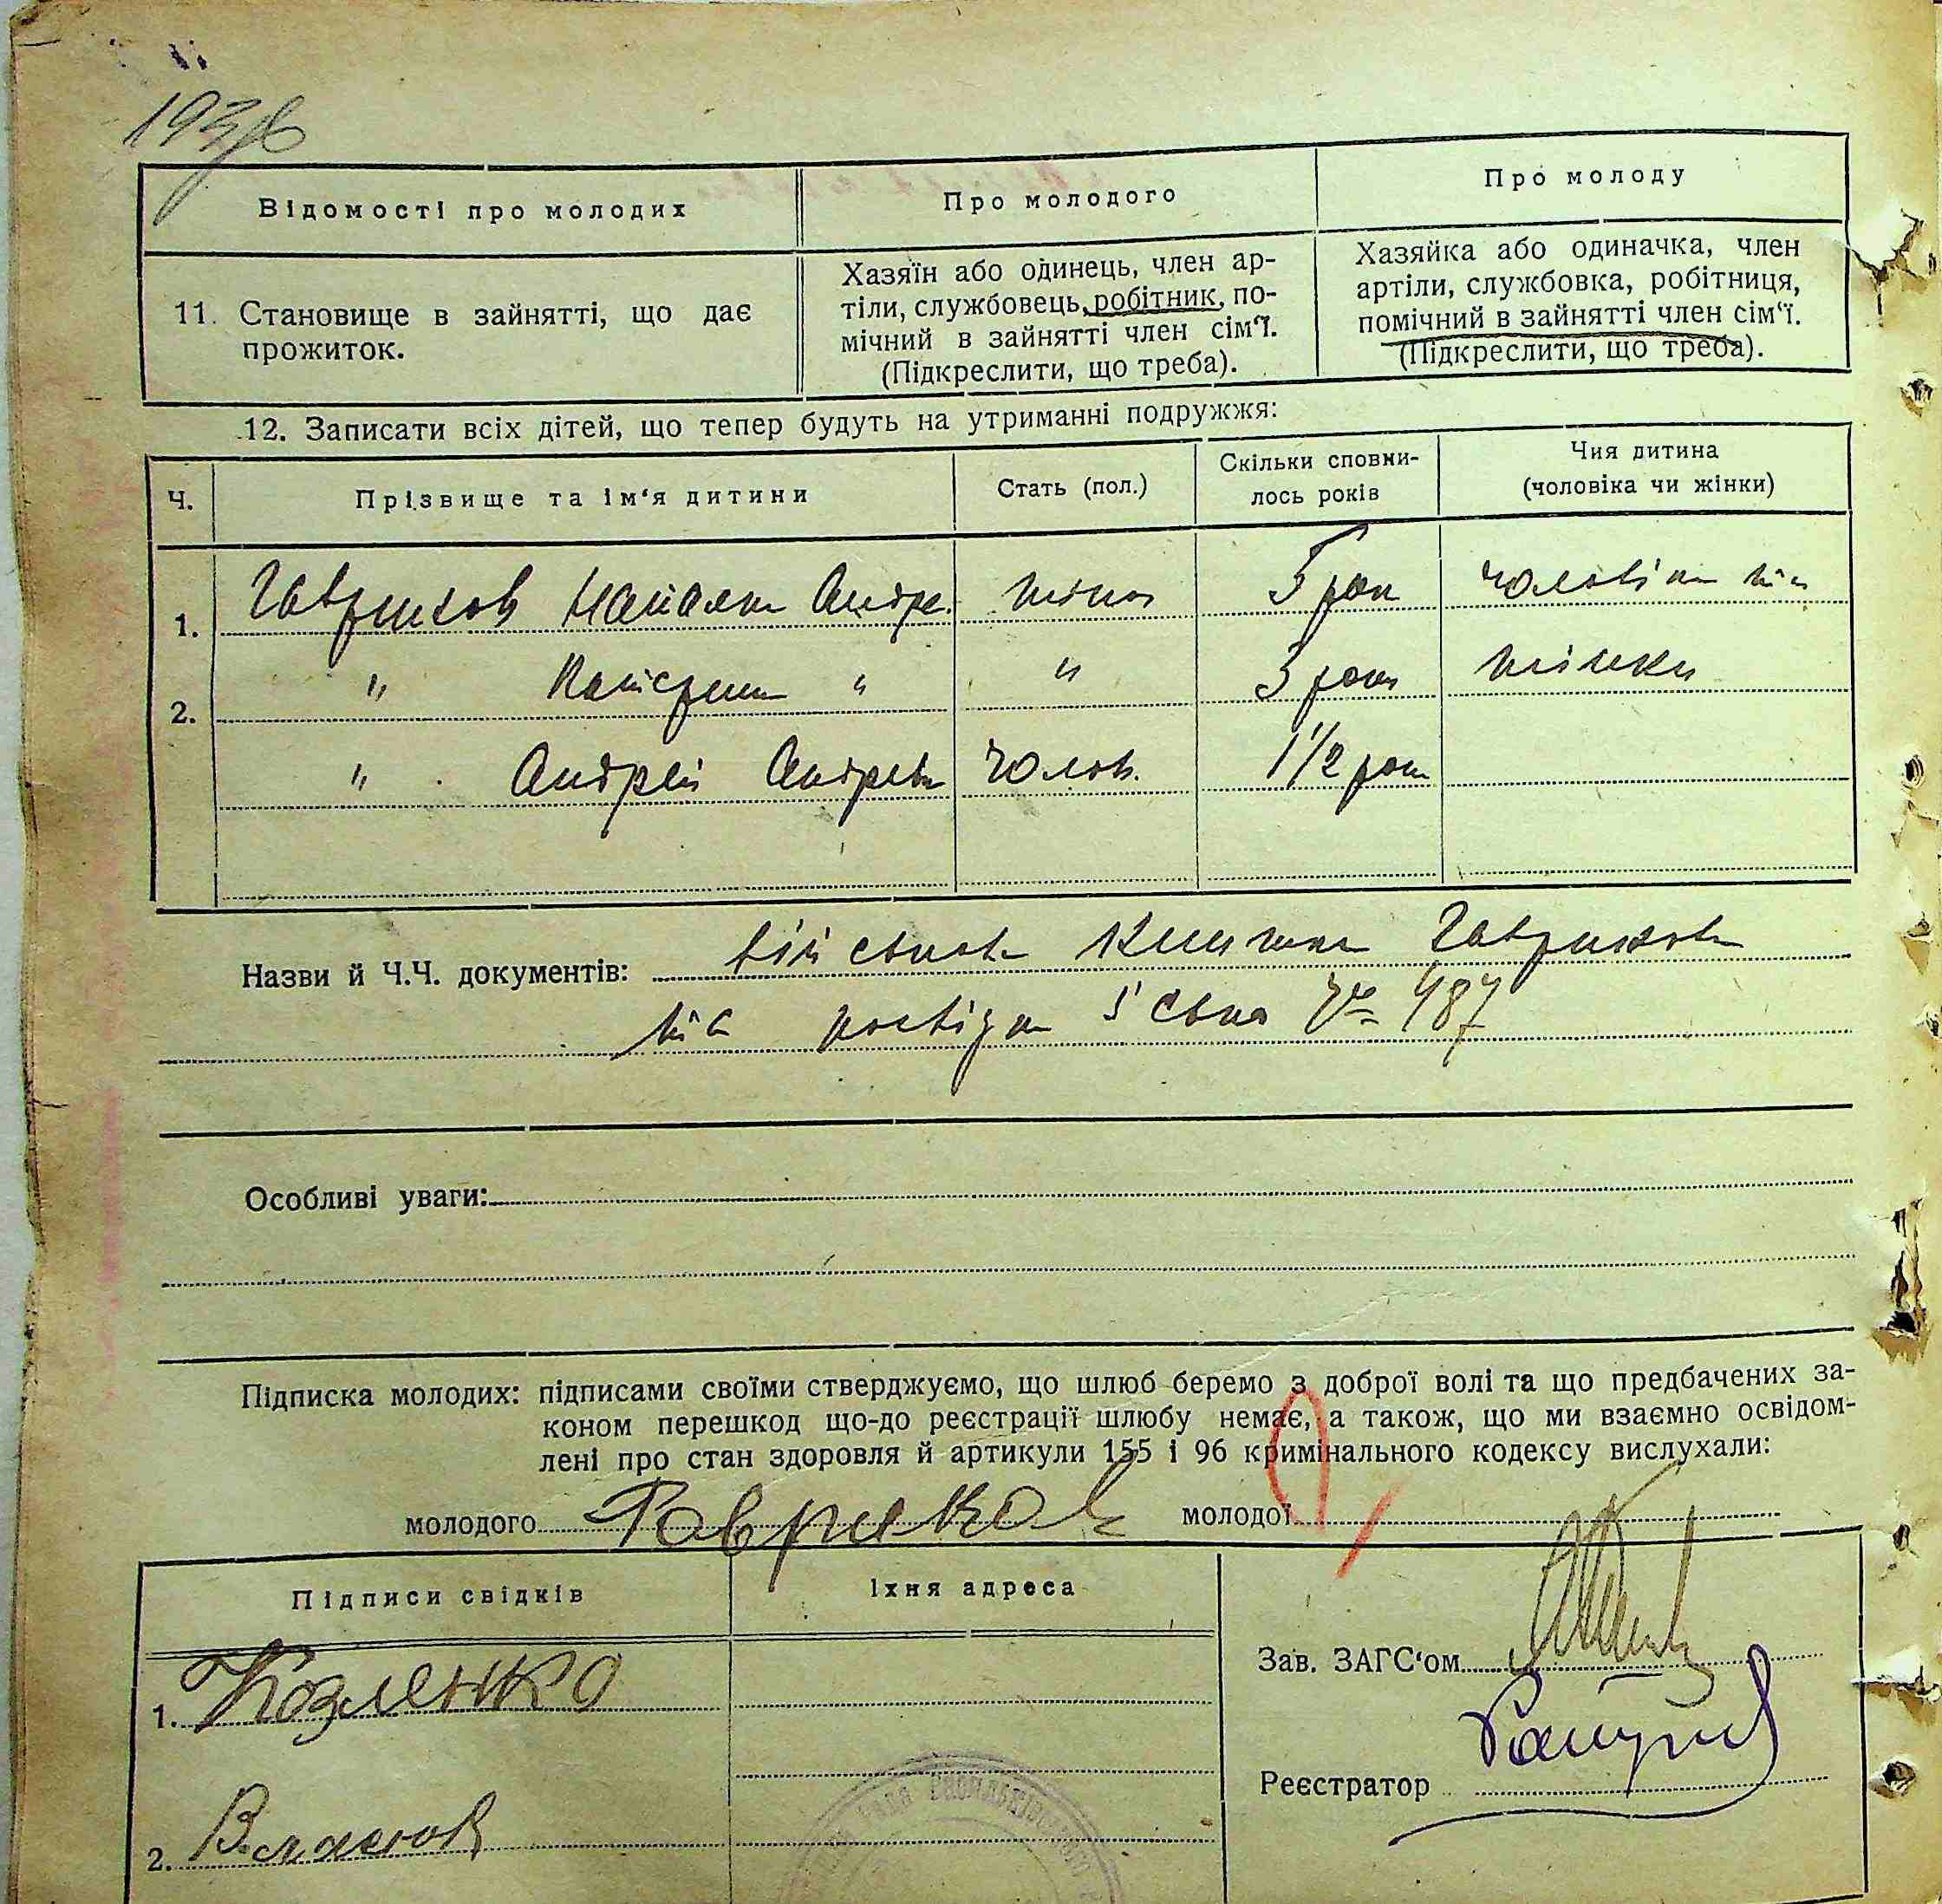 193
Відомості про молодих
Про молодого
Про молоду
11. Становище в зайнятті, що дає
прожиток.
Хазяїн або одинець, член ар-
тіли, службовець, робітник, по-
мічний в зайнятті член сім'ї.
(Підкреслити, що треба).
Хазяйка або одиначка, член
артіли, службовка, робітниця,
помічний в зайнятті член сім'ї.
(Підкреслити, що треба).
12. Записати всіх дітей, що тепер будуть на утриманні подружжя:
Ч.
Прізвище та ім'я дитини
Стать (пол.)
Скільки сповни-
лось років
Чия дитина
(чоловіка чи жінки)
1. Гавриков Наталя Андре. жіноч 5 рок чоловіка
" " " 3 роки жінки
2.
" Андрей Андреев чолов. 1 1/2 рок
Назви й Ч.Ч. документів: військова книжка Гаврикова
довідка 487
Особливі уваги:
Підписка молодих: підписами своїми стверджуємо, що шлюб беремо з доброї волі та що предбачених за-
коном перешкод що-до реєстрації шлюбу немає, а також, що ми взаємно освідом-
лені про стан здоровля й артикули 155 і 96 кримінального кодексу вислухали:
молодого Гавриков молодої
Підписи свідків
Їхня адреса
1. Козленко
2. Власюк
Зав. ЗАГС'ом
Реєстратор